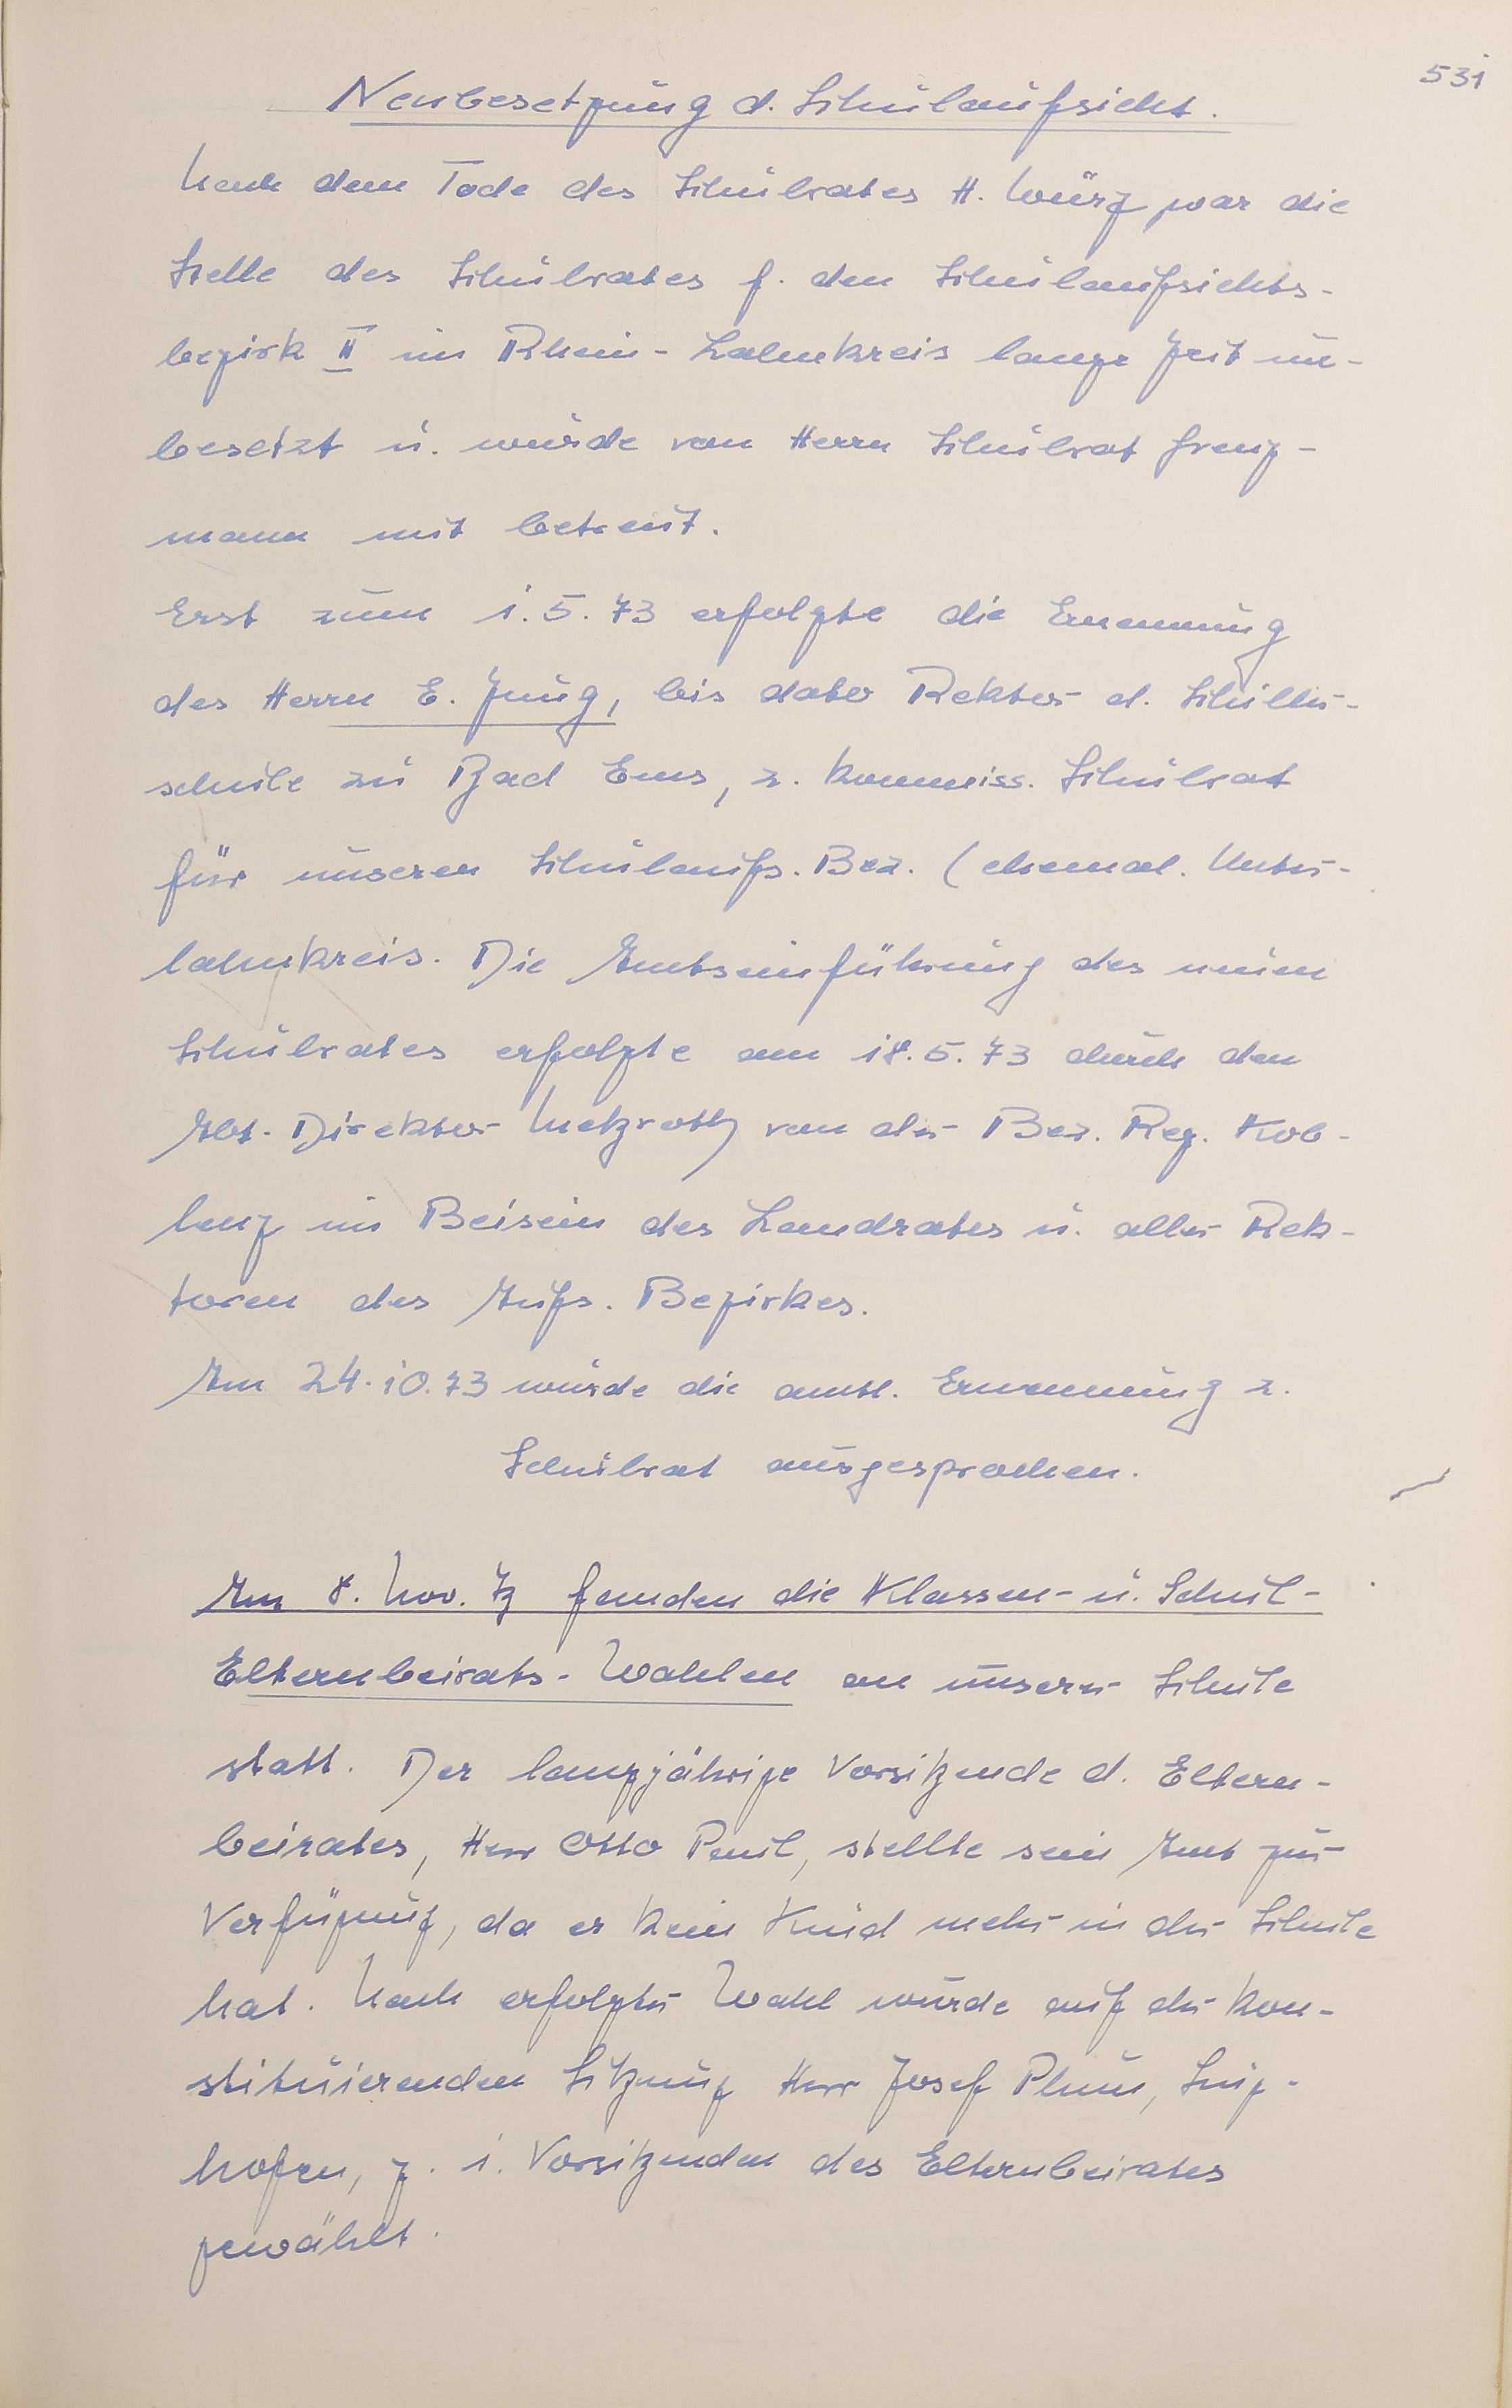 531
Neubesetzung d. Schulaufsicht.
Nach dem Tode des Schulrates H. Würz war die
Stelle des Schulrates f. den Schulaufsichts-
bezirk II im Rhein-Lahnkreis lange Zeit un-
besetzt u. wurde von Herrn Schulrat Grenz-
mann mit betreut.
Erst zum 1.5.73 erfolgte die Ernennung
des Herrn E. Jung, bis dato Rektor d. Schiller-
schule zu Bad Ems, z. kommiss. Schulrat
für unseren Schulaufs. Bez. (ehemal. Unter-
lahnkreis. Die Amtseinführung des neuen
Schulrates erfolgte am 18.5.73 durch den
Abt. Direktor Metzroth von der Bez. Reg. Kob-
lenz im Beisein des Landrates u. aller Rek-
toren des Aufs. Bezirkes.
Am 24.10.73 wurde die amtl. Ernennung z.
Schulrat ausgesprochen.
Am 8. Nov. 73 fanden die Klassen- u. Schul-
Elternbeirats-Wahlen an unserer Schule
statt. Der langjährige Vorsitzende d. Eltern-
beirates, Herr Otto Paul, stellte sein Amt zur
Verfügung, da er kein Kind mehr in der Schule
hat. Nach erfolgter Wahl wurde auf der kon-
stituierenden Sitzung Herr Josef Plum, Sing-
hofen, z. 1. Vorsitzenden des Elternbeirates
gewählt.